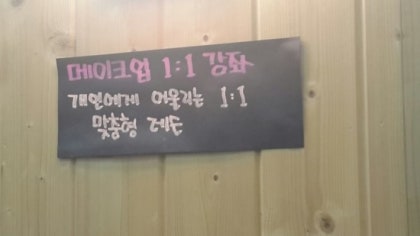 메이크업 1:1 강좌
개인에게 어울리는 1:1
맞춤형 레슨